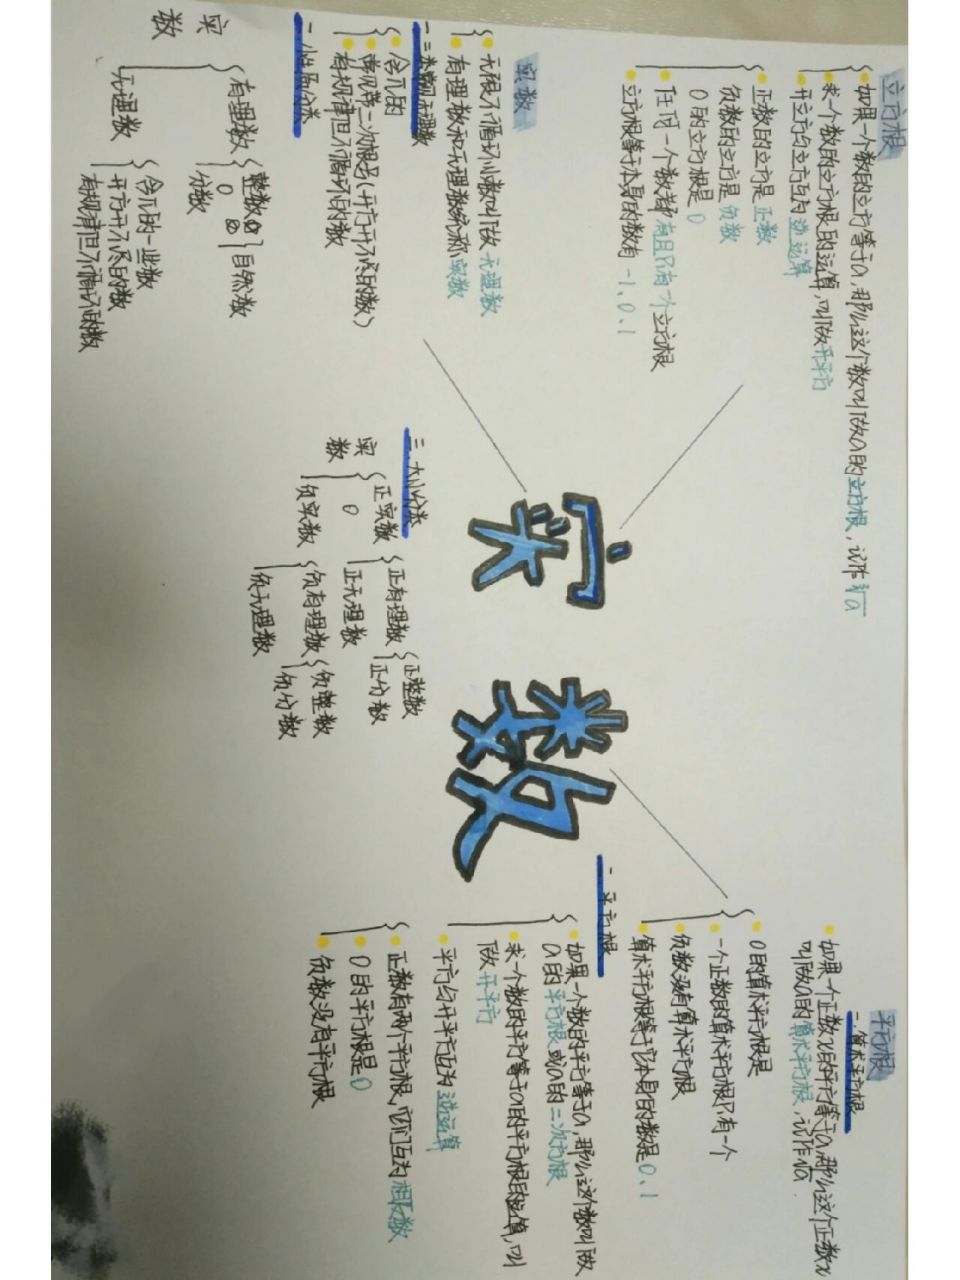 立方根
如果一个数的立方等于a，那么这个数叫做a的立方根，记作∛a
求一个数的立方根的运算，叫做开平方
开立方与立方互为逆运算
正数的立方是正数
负数的立方是负数
0的立方根是0
任何一个数都有且只有一个立方根
立方根等于本身的数有-1、0、1
实数
无限不循环小数叫做无理数
有理数和无理数统称实数
一、三类常见无理数
含π的
常见带二次根号(开方开不尽的数)
有规律但不循环的数
二、性质分类
实
数
有理数
整数
0
自然数
分数
无理数
含π的一些数
开方开不尽的数
有规律但不循环的数
三、大小分类
实
数
正实数
0
负实数
正有理数
正无理数
负有理数
负无理数
正整数
正分数
负整数
负分数
实数
平方根
一、算术平方根
如果一个正数x的平方等于a，那么这个正数x
叫做a的算术平方根，记作√a
0的算术平方根是
一个正数的算术平方根只有一个
负数没有算术平方根
算术平方根等于它本身的数是0、1
二、平方根
如果一个数的平方等于a，那么这个数叫做
a的平方根或a的二次方根
求一个数的平方等于a的平方根的运算，叫
做开平方
平方与开平方互为逆运算
正数有两个平方根，它们互为相反数
0的平方根是0
负数没有平方根